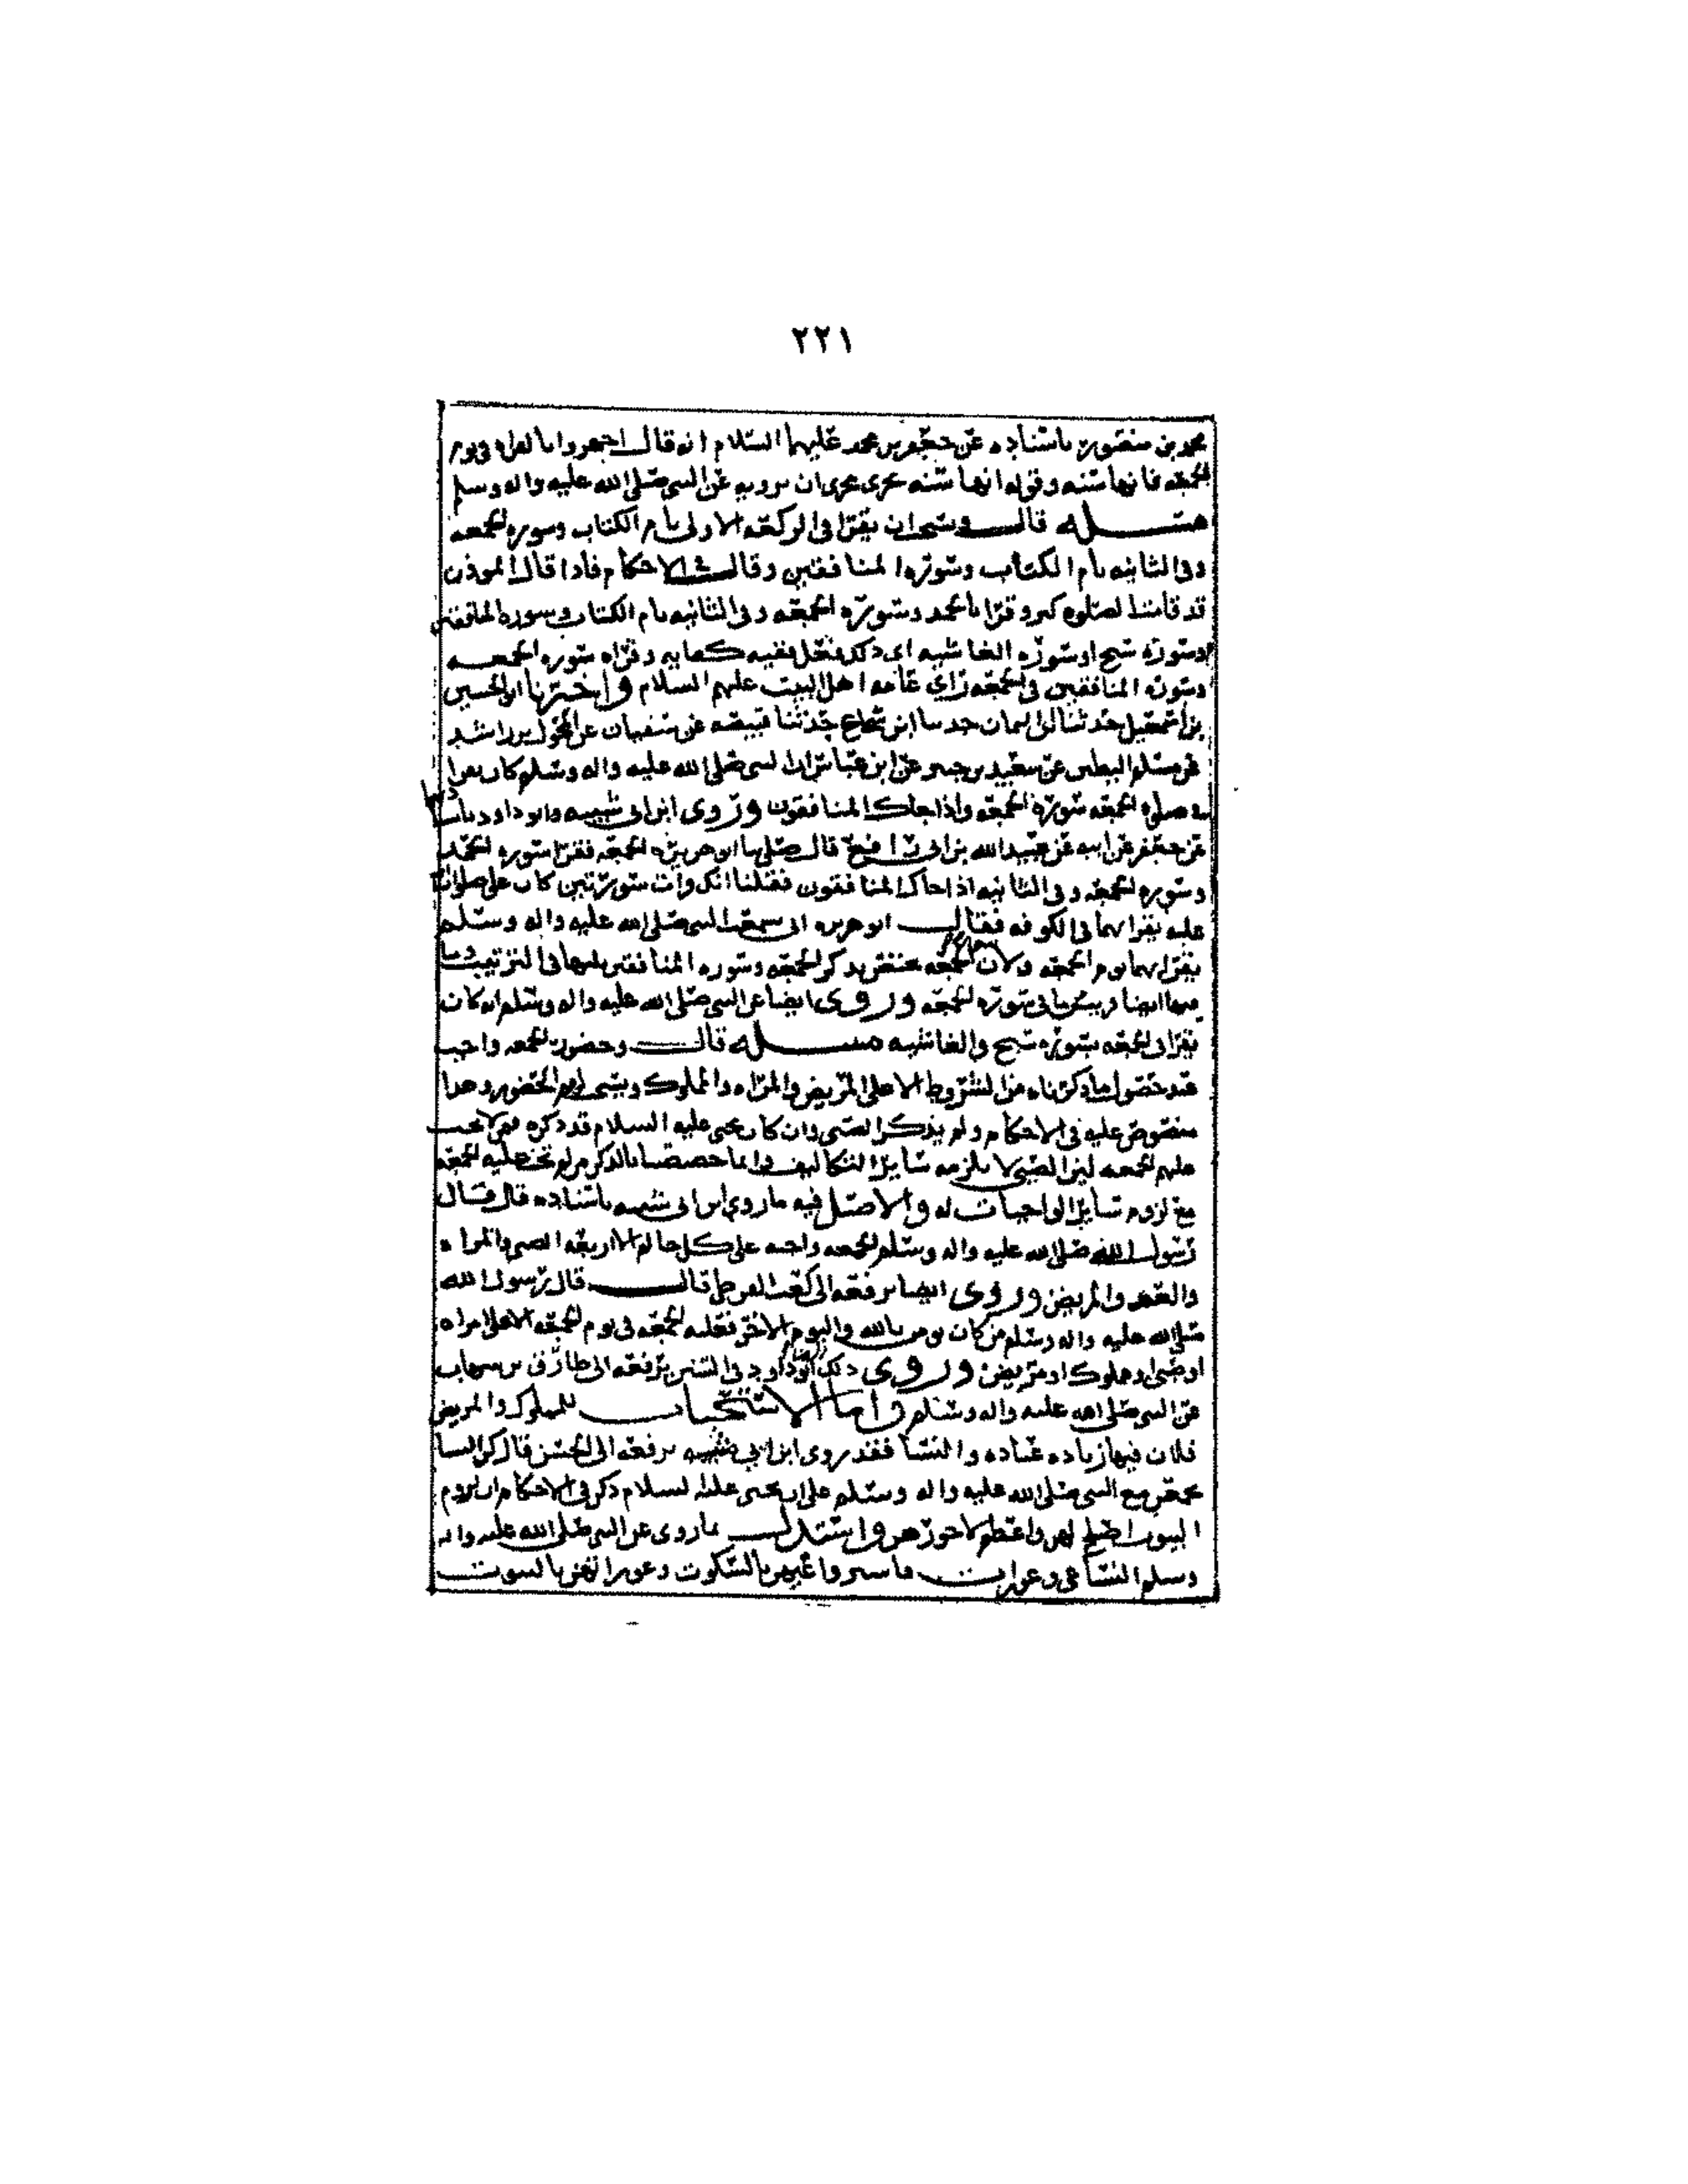 ٢٢١
محمد بن منصور باسناده عن جعفر بن محمد عليهما السلام انه قال اجهروا بالقراه في يوم
الجمعه فانها سنه وقوله انها سنه يجري مجرى ان يرويه عن النبي صلى الله عليه واله وسلم
مسئله قال ويستحب ان يقرا في الركعه الاولى بام الكتاب وسوره الجمعه
وفي الثانيه بام الكتاب وسوره المنافقين وقال في الاحكام فاذا قال الموذن
قد قامت الصلوه كبر وقرا بالحمد وسوره الجمعه وفي الثانيه بام الكتاب وسوره المنافقين
اوسوره سبح اوسوره الغاشيه اي ذلك فعل ففيه كفايه وقراه سوره الجمعـــه
وسوره المنافقين في الجمعه راي عامه اهل البيت عليهم السلام واخبرنا ابو الحسين
بن اسمعيل حدثنا ابن اليمان حدثنا ابن شجاع حدثنا قبيصه عن سفيان عن المخول بن راشد
عن مسلم البطين عن سعيد بن جبير عن ابن عباس ان النبي صلى الله عليه واله وسلم كان يقرا
في صلوه الجمعه سوره الجمعه واذا جاك المنافقون وروى ابن ابي شيبه وابو داود
عن جعفر عن ابيه عن عبيد الله بن ابي رافع قال صلى بنا ابو هريره الجمعه فقرا سوره الحمد
وسوره الجمعه وفي الثانيه اذا جاك المنافقون فقلنا انك قرات سورتين كان علي صلوات
عليه يقرا بهما في الكوفه فقال ابو هريره اني سمعت النبي صلى الله عليه واله وسلم
يقرا بهما يوم الجمعه ولان الجمعه تختص بذكر الجمعه وسوره المنافقين يليها في الترتيب
فيها ايضا وبيض ما في سوره الجمعه وروى ايضا عن النبي صلى الله عليه واله وسلم انه كان
يقرا في الجمعه بسوره سبح والغاشيه مسئله قال وحضور الجمعه واجب
عند حصول ما ذكرناه من الشروط الا على المريض والمراه والمملوك ويستحب لهم الحضور وهذا
منصوص عليه في الاحكام ولم يذكر الصبي وان كان يحيى عليه السلام قد ذكره فيمن لا تجب
عليهم الجمعه لان الصبي لا يلزمه سائر التكاليف وانما خصصنا بالذكر من لم تجب عليه الجمعه
مع لزوم سائر الواجبات له والاصل فيه ما روى ابن ابي شيبه باسناده قال قال
رسول الله صلى الله عليه واله وسلم الجمعه واجبه على كل حالم الا اربعه الصبي والمراه
والعبد والمريض وروى ايضا يرفعه الى كعب القرظي قال قال رسول الله
صلى الله عليه واله وسلم من كان يومن بالله واليوم الاخر فعليه الجمعه في يوم الجمعه الا على امراه
اوصبي اومملوك اومريض وروى ذلك ابو داود في السنن يرفعه الى طارق بن شهاب
عن النبي صلى الله عليه واله وسلم واما الاستحباب للمملوك والمريض
فلان فيها زياده عباده والنسا فقد روى ابن ابي شيبه يرفعه الى الحسن قال كن النسا
يجمعن مع النبي صلى الله عليه واله وسلم على ان يحيى عليه السلام ذكر في الاحكام ان لزوم
البيوت اصلح لهن واعظم لاجورهن واستدل بما روى عن النبي صلى الله عليه واله
وسلم النسا عي وعورات فاستروا عيهن بالسكوت وعوراتهن بالبيوت